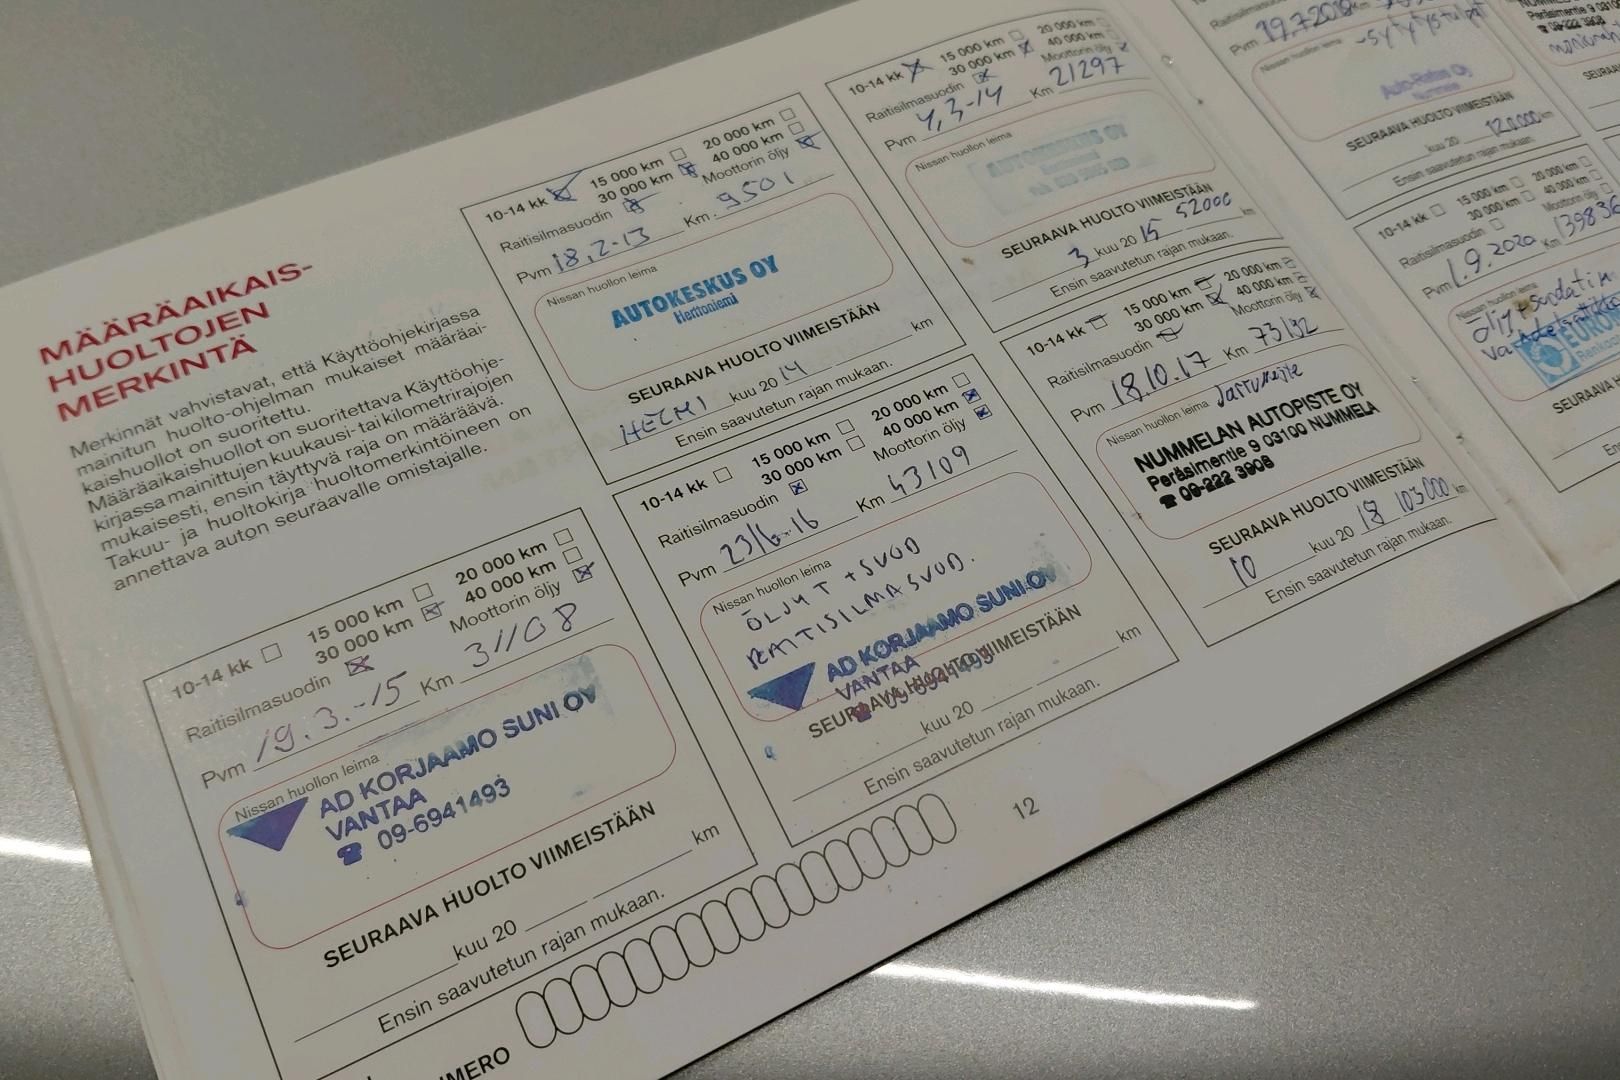 MÄÄRÄAIKAIS-
HUOLTOJEN
MERKINTÄ
Merkinnät vahvistavat, että Käyttöohjekirjassa
mainitun huolto-ohjelman mukaiset määräai-
kaishuollot on suoritettu.
Määräaikaishuollot on suoritettava Käyttöohje-
kirjassa mainittujen kuukausi- tai kilometrirajojen
mukaisesti, ensin täyttyvä raja on määräävä.
Takuu- ja huoltokirja huoltomerkintöineen on
annettava auton seuraavalle omistajalle.
10-14 kk 15 000 km 20 000 km
30 000 km 40 000 km
Raitisilmasuodin Moottorin öljy
Pvm 18.2-13 Km 9501
Nissan huollon leima
AUTOKESKUS OY
Herttoniemi
SEURAAVA HUOLTO VIIMEISTÄÄN
HELMI kuu 20 14 km
Ensin saavutetun rajan mukaan.
10-14 kk 15 000 km 20 000 km
30 000 km 40 000 km
Raitisilmasuodin Moottorin öljy
Pvm 4.3-14 Km 21297
Nissan huollon leima
AUTOKESKUS OY
SEURAAVA HUOLTO VIIMEISTÄÄN
3 kuu 20 15 52000 km
Ensin saavutetun rajan mukaan.
10-14 kk 15 000 km 20 000 km
30 000 km 40 000 km
Raitisilmasuodin Moottorin öljy
Pvm 19.3.-15 Km 31108
Nissan huollon leima
AD KORJAAMO SUNI OY
VANTAA
☎ 09-6941493
SEURAAVA HUOLTO VIIMEISTÄÄN
kuu 20 km
Ensin saavutetun rajan mukaan.
10-14 kk 15 000 km 20 000 km
30 000 km 40 000 km
Raitisilmasuodin Moottorin öljy
Pvm 23/6.16 Km 43109
Nissan huollon leima
ÖLJYT + SUOD
RAITISILMASUOD.
AD KORJAAMO SUNI OY
VANTAA
☎ 09-6941493
SEURAAVA HUOLTO VIIMEISTÄÄN
kuu 20 km
Ensin saavutetun rajan mukaan.
10-14 kk 15 000 km 20 000 km
30 000 km 40 000 km
Raitisilmasuodin Moottorin öljy
Pvm 18.10.17 Km
Nissan huollon leima Jarruneste
NUMMELAN AUTOPISTE OY
Peräsimentie 9 03100 NUMMELA
☎ 09-222 3908
SEURAAVA HUOLTO VIIMEISTÄÄN
10 kuu 20 18 103000 km
Ensin saavutetun rajan mukaan.
12
Raitisilmasuodin
Pvm 19.7.2018 Km
Nissan huollon leima -sytytystulpat
SEURAAVA HUOLTO VIIMEISTÄÄN
kuu 20 120000 km
Ensin saavutetun rajan mukaan.
10-14 kk 15 000 km 20 000 km
30 000 km 40 000 km
Raitisilmasuodin Moottorin öljy
Pvm 1.9.2020 Km 139836
Nissan huollon leima
Öljy+suodatin
SEURAAVA H
Ensin
Peräsimentie 9 03100
☎ 09-222 3908
SEURAAV